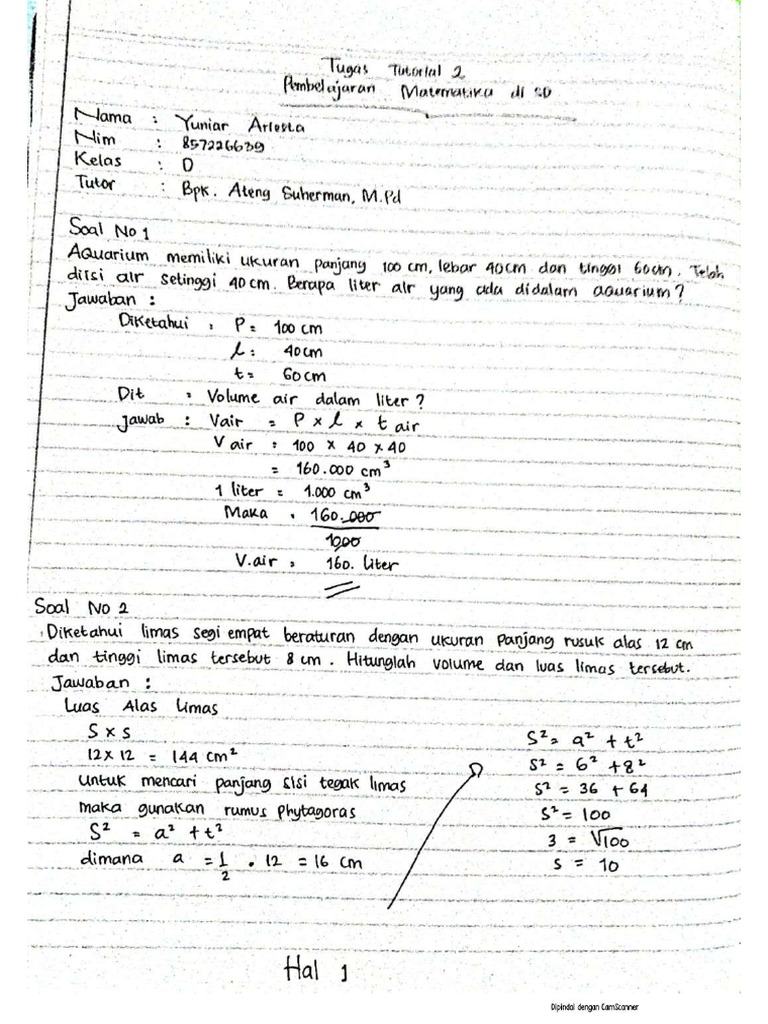 Tugas Tutorial 2
Pembelajaran Matematika di SD
Nama : Yuniar Ariesta
Nim : 857226639
Kelas : D
Tutor : Bpk. Ateng Suherman, M.Pd
Soal No 1
Aquarium memiliki ukuran panjang 100 cm, lebar 40cm dan tinggi 60cm. Telah
diisi air setinggi 40 cm. Berapa liter air yang ada didalam aquarium?
Jawaban :
Diketahui : P = 100 cm
l : 40cm
t = 60cm
Dit : Volume air dalam liter?
Jawab : Vair = P x l x t air
V air : 100 x 40 x 40
= 160.000 cm³
1 liter = 1.000 cm³
Maka : 160.000
1000
V.air = 160. Liter
Soal No 2
Diketahui limas segi empat beraturan dengan ukuran panjang rusuk alas 12 cm
dan tinggi limas tersebut 8 cm. Hitunglah volume dan luas limas tersebut.
Jawaban :
Luas Alas Limas
S x S
12 x 12 = 144 cm²
Untuk mencari panjang sisi tegak limas
maka gunakan rumus phytagoras
S² = a² + t²
dimana a = 1/2 . 12 = 16 cm
S² = a² + t²
S² = 6² + 8²
S² = 36 + 64
S² = 100
3 = √100
S = 10
Hal 1
Dipindai dengan CamScanner